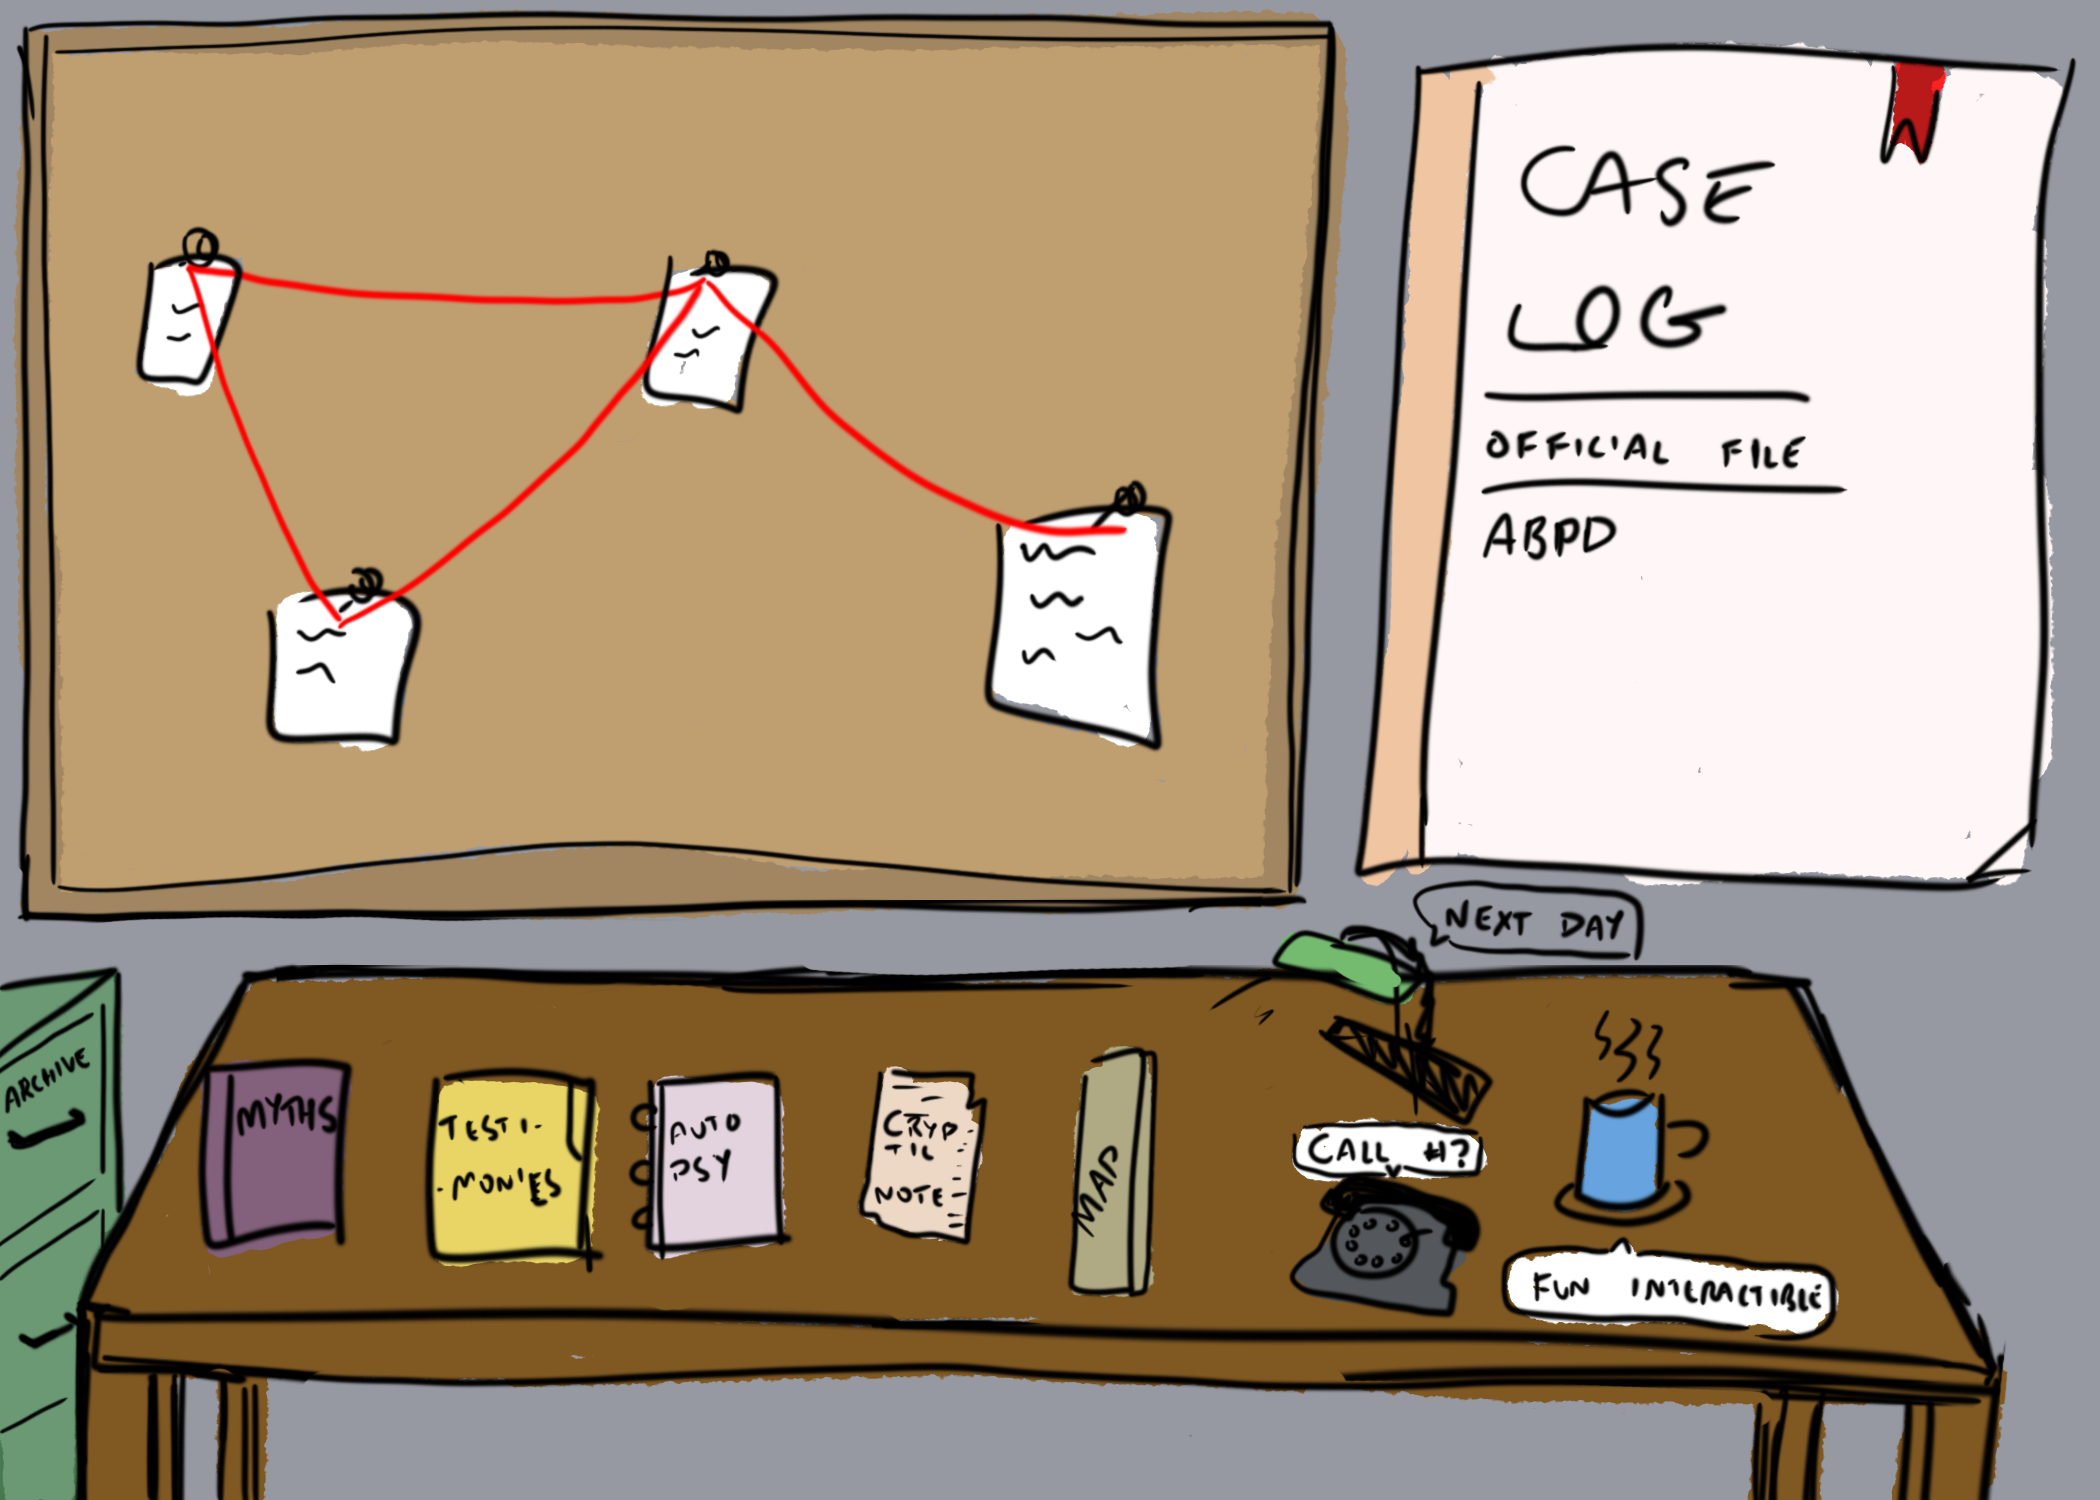 CASE
LOG
OFFICIAL FILE
ABPD
NEXT DAY
ARCHIVE
MYTHS
TESTI-
-MONIES
AUTO
PSY
CRYP
TIC
NOTE
MAP
CALL #?
FUN INTERACTIBLE